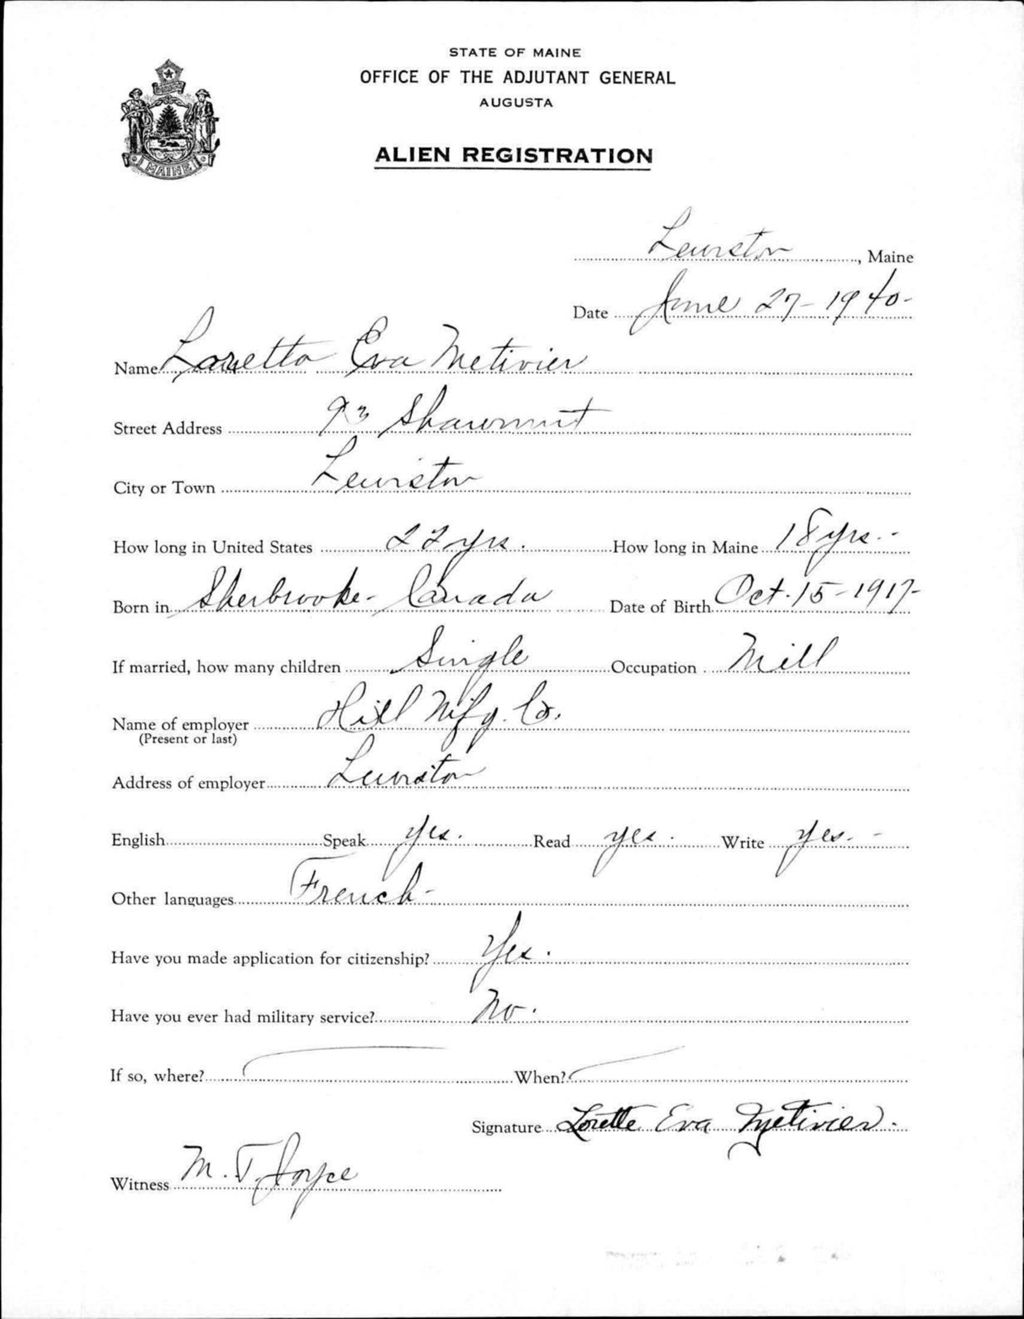 STATE OF MAINE
OFFICE OF THE ADJUTANT GENERAL
AUGUSTA
ALIEN REGISTRATION
MAINE
Lewiston, Maine
Date June 27-1940-
Name Loretta Eva Metivier
Street Address 93 Shawmut
City or Town Lewiston
How long in United States 22 yrs. How long in Maine 18 yrs.-
Born in Sherbrooke- Canada Date of Birth Oct. 15-1917-
If married, how many children Single Occupation Mill
Name of employer Hill Mfg. Co.
(Present or last)
Address of employer Lewiston
English Speak yes. Read yes. Write yes.-
Other languages French-
Have you made application for citizenship? Yes.
Have you ever had military service? No.
If so, where? When?
Signature Lorette Eva Metivier.
Witness M. T. Joyce